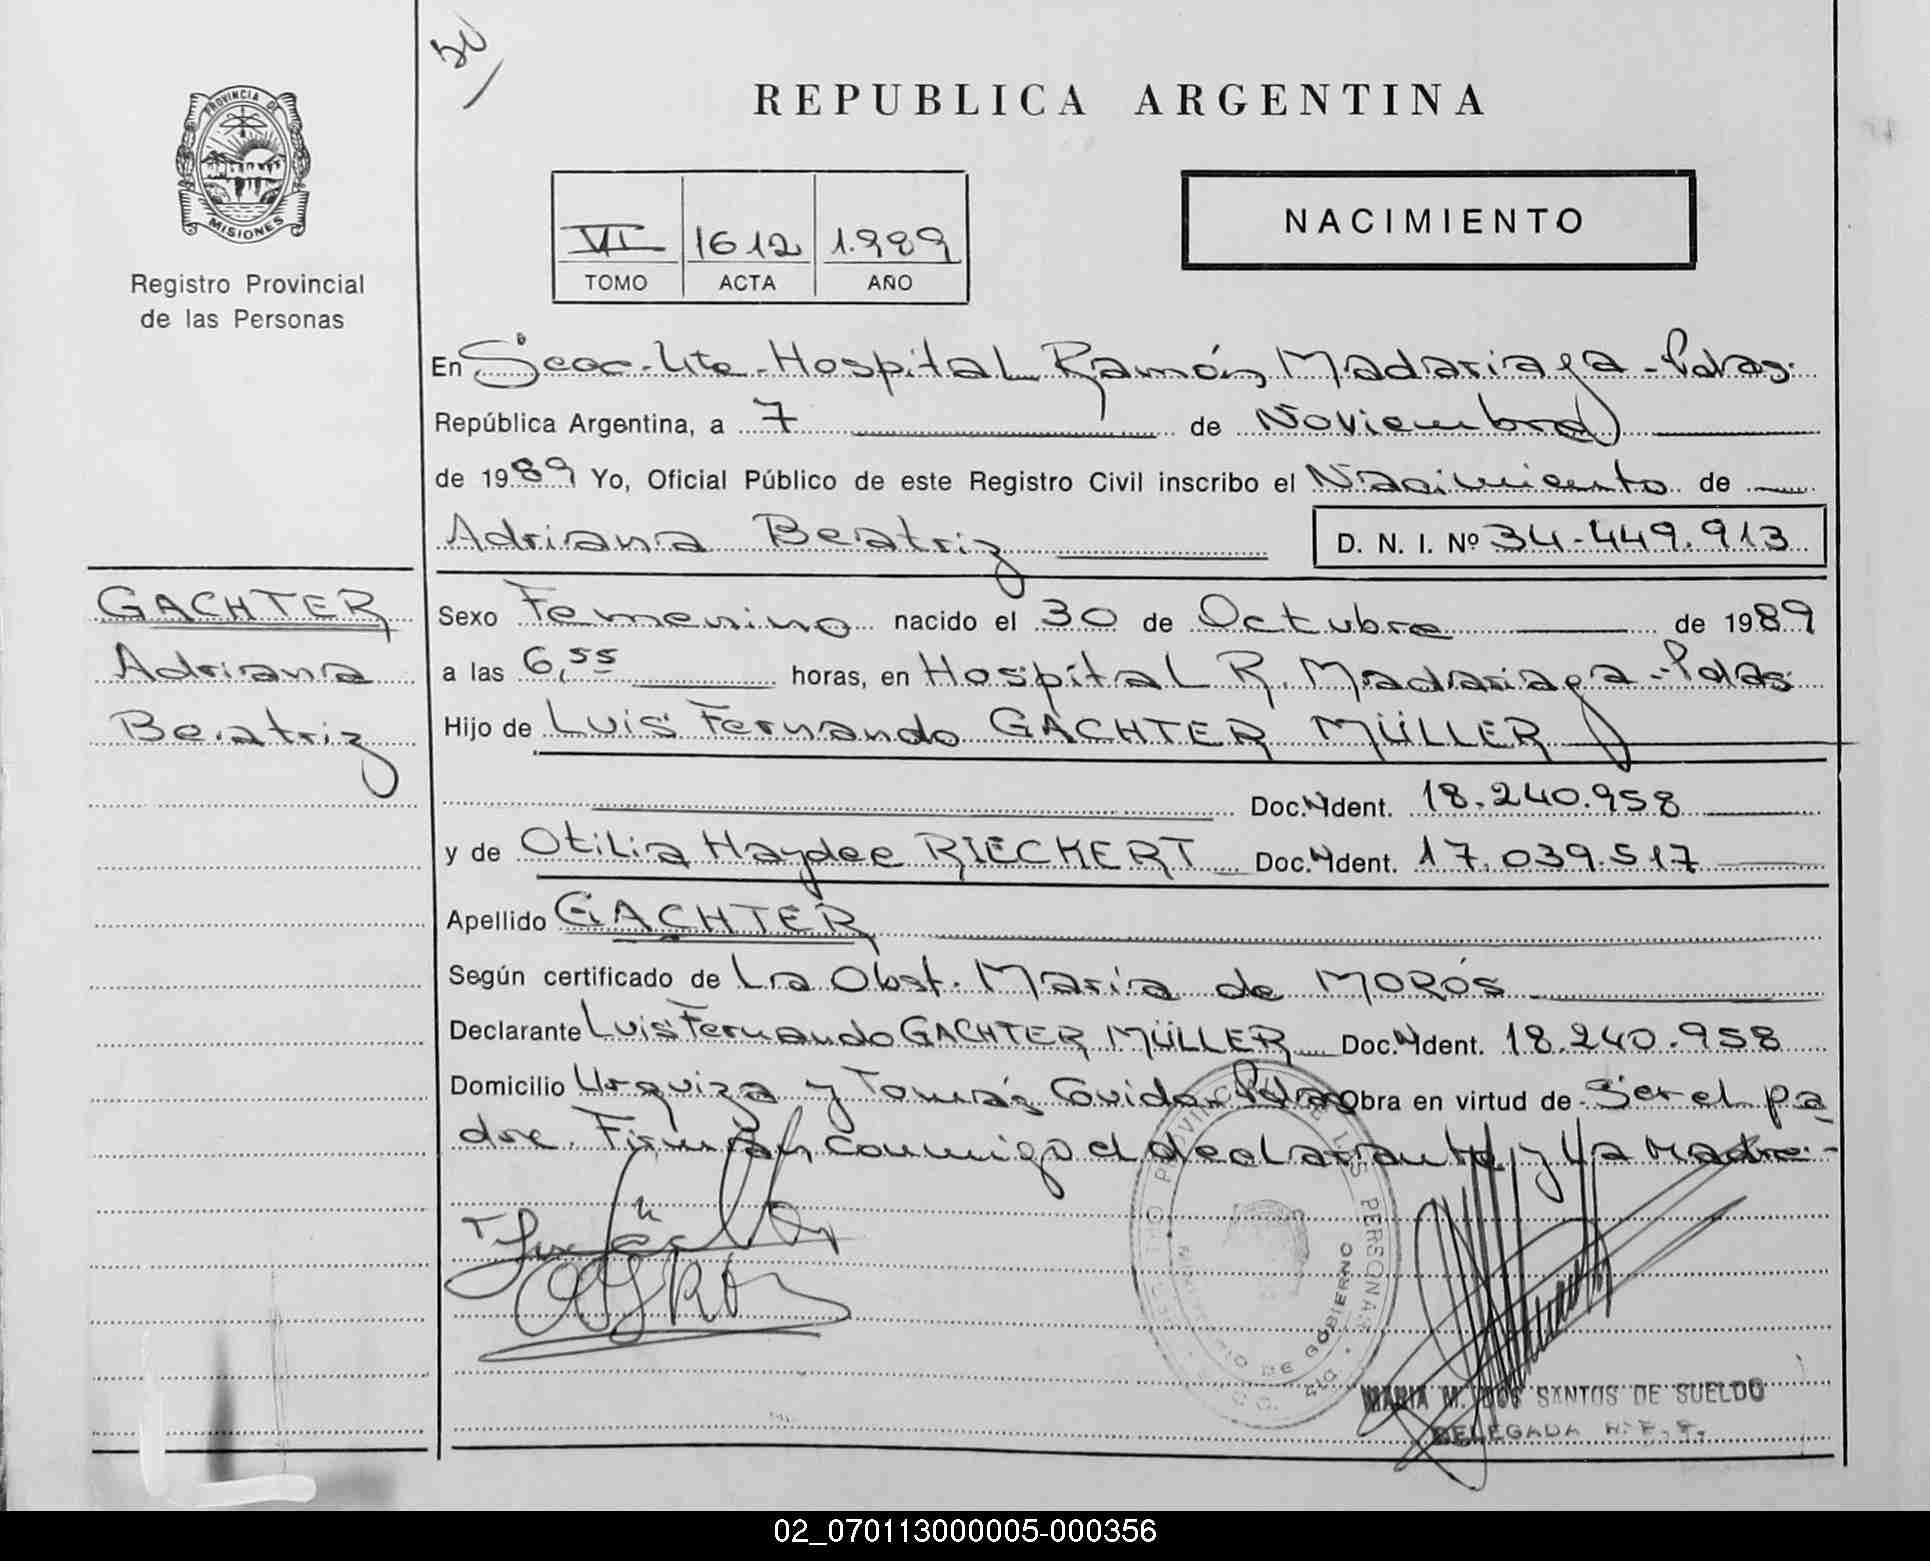 50/
PROVINCIA DE
MISIONES
Registro Provincial
de las Personas
REPUBLICA ARGENTINA
VI 1612 1.989
TOMO ACTA AÑO
NACIMIENTO
En Secc. Hospital Ramón Madariaga - Pdas.
República Argentina, a 7 de Noviembre
de 1989 Yo, Oficial Público de este Registro Civil inscribo el Nacimiento de
Adriana Beatriz D. N. I. Nº 34.449.913
GACHTER
Adriana
Beatriz
Sexo Femenino nacido el 30 de Octubre de 1989
a las 6,55 horas, en Hospital R. Madariaga - Pdas
Hijo de Luis Fernando GACHTER MÜLLER
Doc. Ident. 18.240.958
y de Otilia Haydee RIECKERT Doc. Ident. 17.039.517
Apellido GACHTER
Según certificado de La Obst. María de MOROS
Declarante Luis Fernando GACHTER MÜLLER Doc. Ident. 18.240.958
Domicilio Urquiza y Tomás Guido Pdas Obra en virtud de Ser el pa
dre. Firman conmigo el declarante y la madre.-
PERSONAS
GOBIERNO
MARIA M. DOS SANTOS DE SUELDO
DELEGADA
02_070113000005-000356